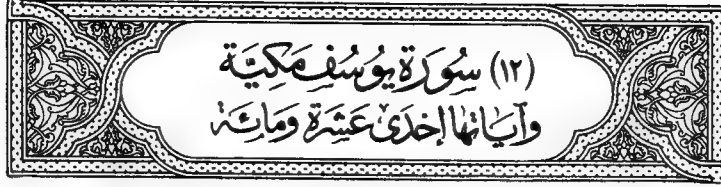 (١٢) سُورَةُ يُوسُفَ مَكِيَّة
وَآيَاتُهَا إِحْدَىٰ عَشَرَةَ وَمَائَة